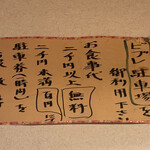 ピアレ駐車場を
御利用下さい。
お食事代
二千円以上 無料
二千円未満 百円
駐車券(1時間)を